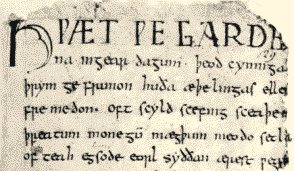 HǷÆT ǷE GARDE
na ingear dagum . þeod cyninga
þrym ge frunon huða æþelingas elle
fremedon . oft scyld scefing sceaþe
þreatum monegū mægþum meodo setla
of teah egsode eorl syððan ærest